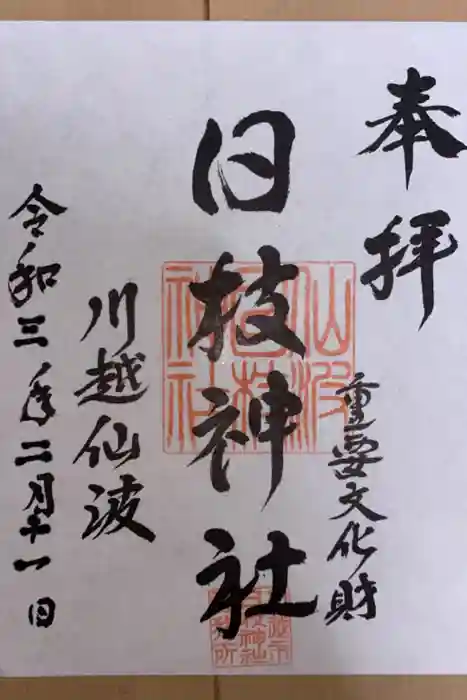 奉拝
重要文化財
日枝神社
川越仙波
令和三年二月十一日
仙波
日枝
神社